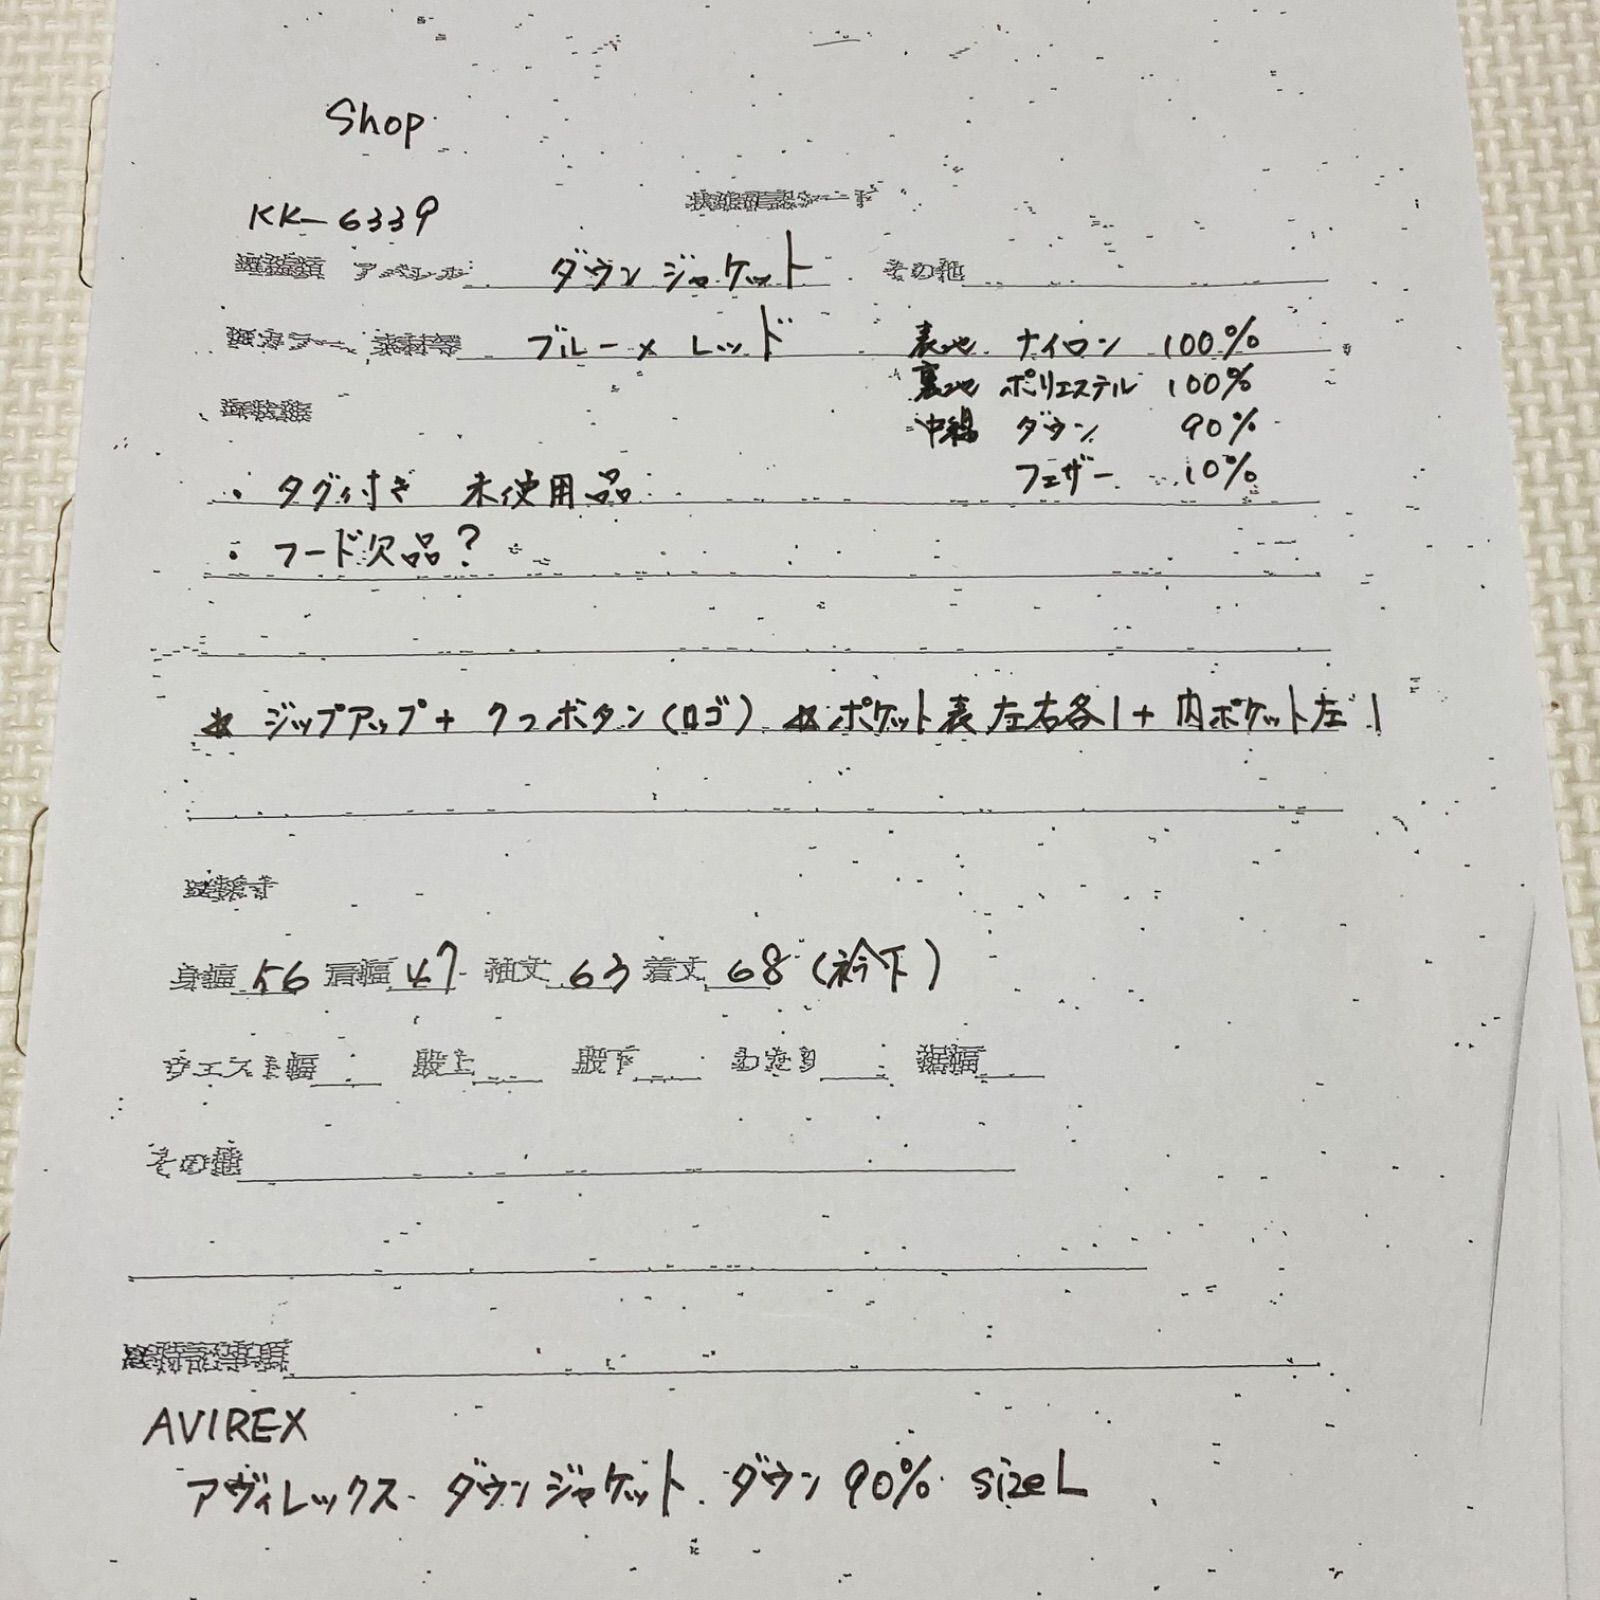 Shop
KK-6339
アパレル ダウンジャケット その他
カラー、素材等 ブルー×レッド 表地 ナイロン 100%
裏地 ポリエステル 100%
中綿 ダウン 90%
・タグ付き 未使用品 フェザー 10%
・フード欠品?
* ジップアップ+クワボタン(ロゴ) * ポケット表左右各1+内ポケット左1
採寸
身幅 56 肩幅 47 袖丈 63 着丈 68 (衿下)
ウエスト幅 股上 股下 わたり 裾幅
その他
特記事項
AVIREX
アヴィレックス ダウンジャケット ダウン90% sizeL